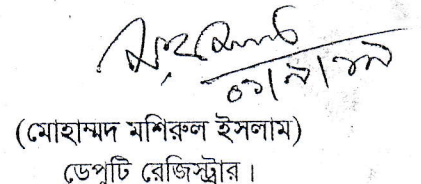 (মোহাম্মদ মশিরুল ইসলাম)
ডেপুটি রেজিস্ট্রার।